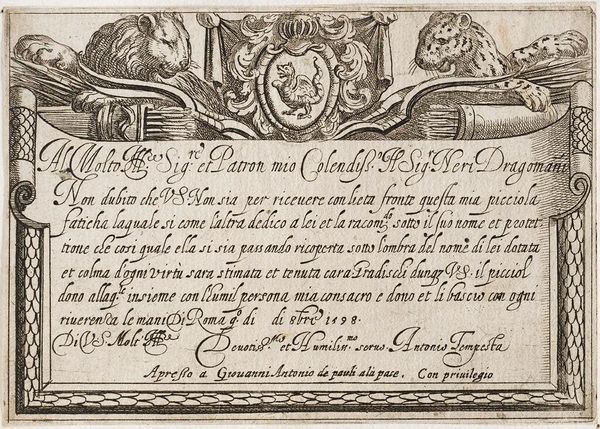 Al Molto Ill.re Sig.re et Patron mio Colendiss.o Il Sig.r Neri Dragomani
Non dubito che V S Non sia per ricevere con lieta fronte questa mia picciola
faticha laquale si come l'altra dedico a lei et la racom.do sotto il suo nome et protet-
tione che cosi quale ella si sia passando ricoperta sotto l'ombra del nome di lei dotata
et colma d'ogni virtù sara stimata et tenuta cara Gradischi dunq; V S. il picciol
dono allaq.le insieme con l'humil persona mia consacro e dono et li bascio con ogni
riverenza le mani Di Roma q.o di di 8bre 1598.
Di V S Molt Ill.re
Devotiss.mo et Humiliss.mo servo. Antonio Tempesta
Apresso a Giovanni Antonio de pauli ala pace. Con privilegio